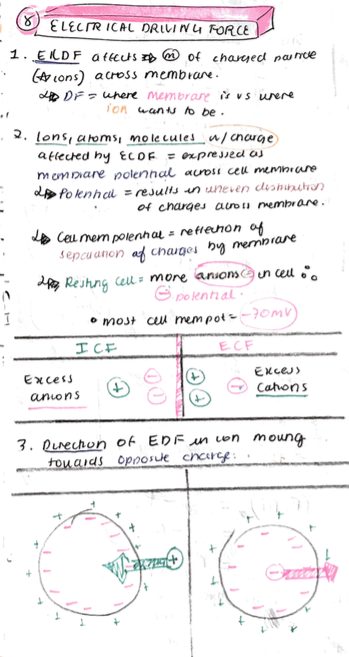 8 ELECTRICAL DRIVING FORCE
1. ELDF affects (m) of charged particle
(ions) across membrane.
DF = where membrane is vs where
ion wants to be.
2. Ions, atoms, molecules w/ charge
affected by ECDF = expressed as
membrane potential across cell membrane
Potential = results in uneven distribution
of charges across membrane.
Cell mem potential = reflection of
separation of charges by membrane
Resting Cell = more anions (-) in cell ∴
⊖ potential.
• most cell mem pot = -70mV
ICF ECF
Excess anions ⊕ ⊖ ⊖
⊕ ⊕ ⊖ Excess Cations
3. Direction of EDF in ion moving
towards opposite charge.